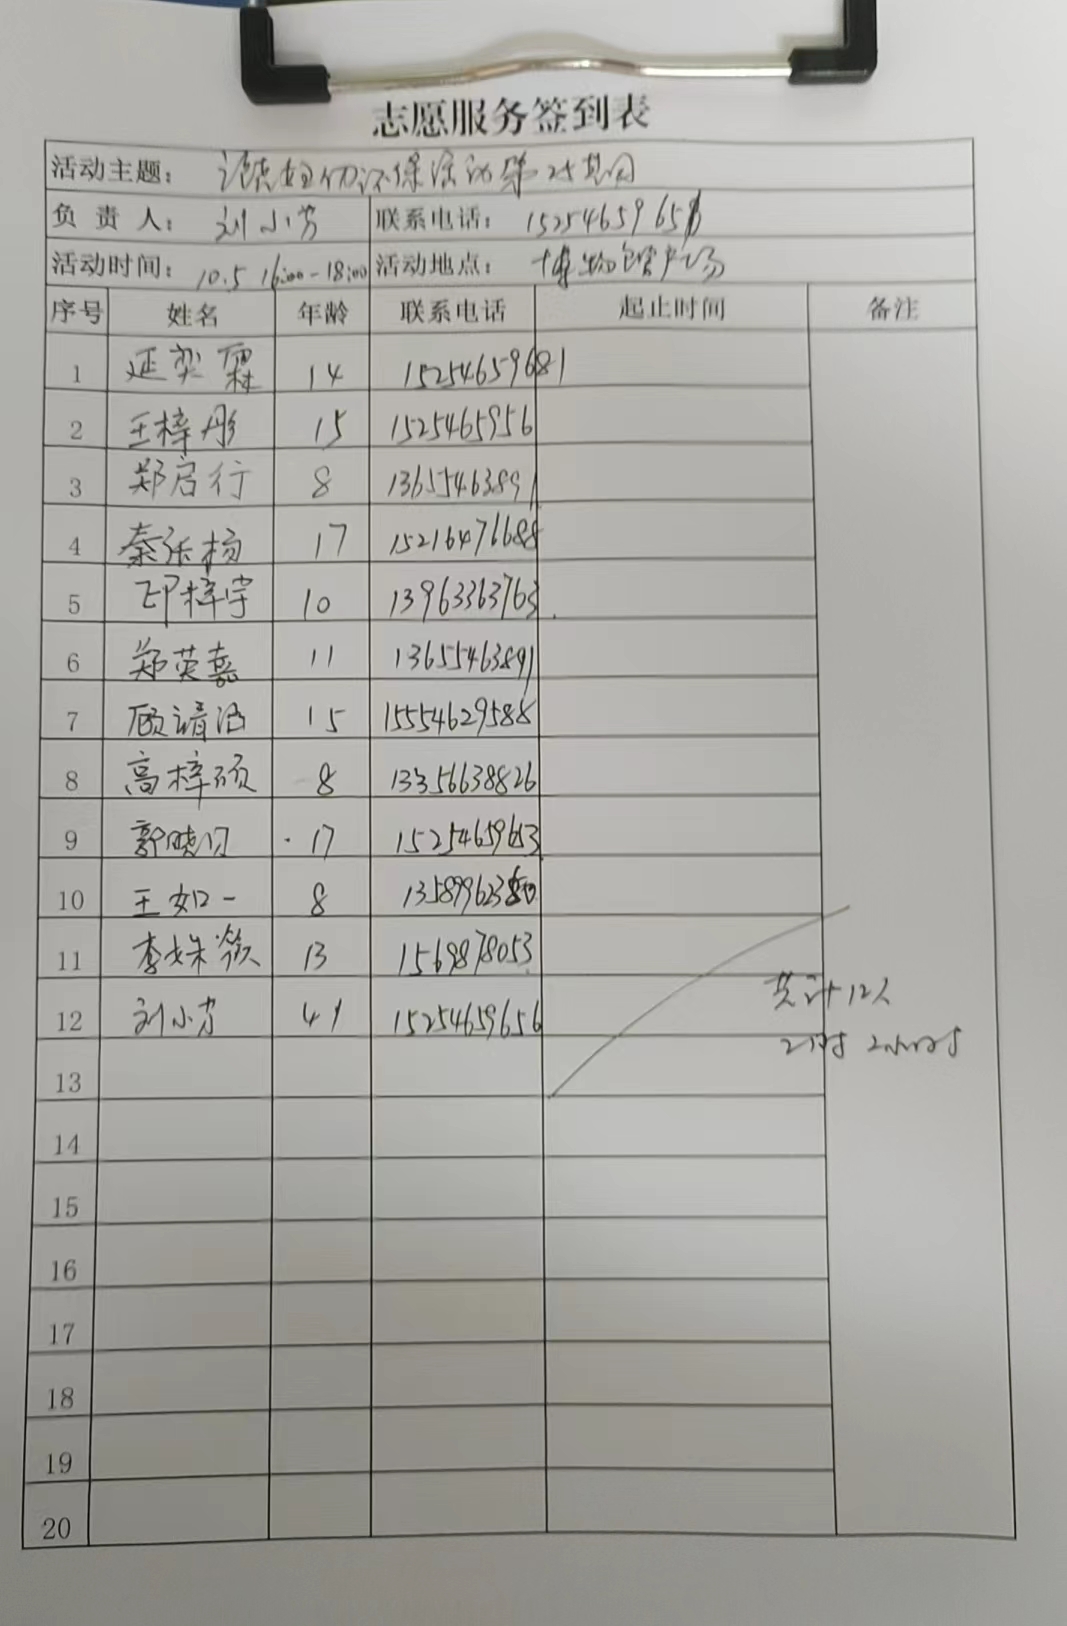 志愿服务签到表
活动主题：
负责人：刘小芳 联系电话：
活动时间：10.5 16:00-18:00 活动地点：博物馆广场
序号 姓名 年龄 联系电话 起止时间 备注
1 延奕霖 14 15254659681
2 王梓彤 15 1525465956
3 郑启行 8 13655463891
4 秦乐杨 17 15216476688
5 邱梓宇 10 13963363763
6 郑英嘉 11 13655463891
7 顾清涵 15 15554629588
8 高梓硕 8 13356638826
9 郭晓 17 15254659653
10 王如一 8
11 李姝 13 1569878053
12 刘小芳 41 15254659656
共计12人
2小时
13
14
15
16
17
18
19
20